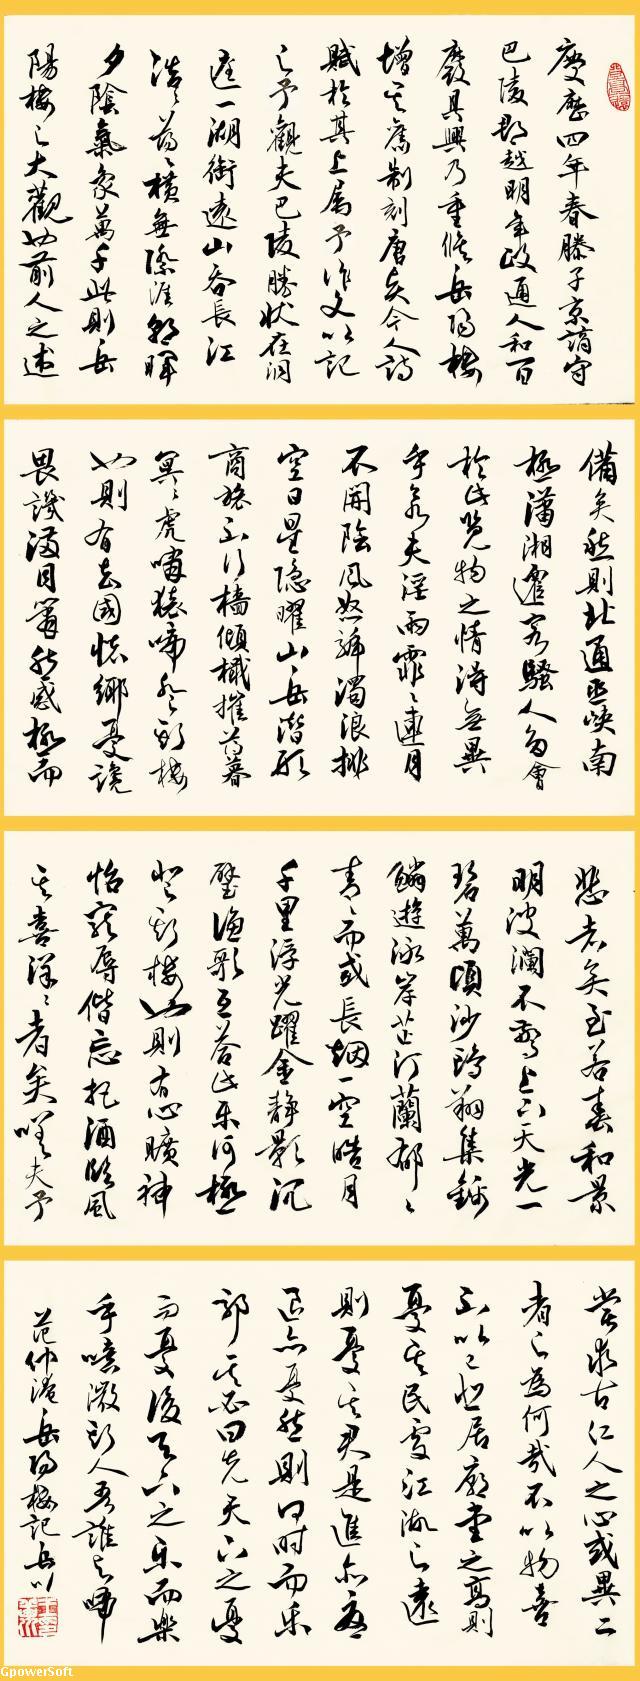 慶歷四年春滕子京謫守
巴陵郡越明年政通人和百
廢具興乃重修岳陽樓
增其舊制刻唐賢今人詩
賦於其上屬予作文以記
之予觀夫巴陵勝狀在洞
庭一湖銜遠山吞長江
浩浩蕩蕩橫無際涯朝暉
夕陰氣象萬千此則岳
陽樓之大觀也前人之述
備矣然則北通巫峽南
極瀟湘遷客騷人多會
於此覽物之情得無異
乎若夫淫雨霏霏連月
不開陰風怒號濁浪排
空日星隱曜山岳潛形
商旅不行檣傾楫摧薄暮
冥冥虎嘯猿啼登斯樓
也則有去國懷鄉憂讒
畏譏滿目蕭然感極而
悲者矣至若春和景
明波瀾不驚上下天光一
碧萬頃沙鷗翔集錦
鱗遊泳岸芷汀蘭郁郁
青青而或長煙一空皓月
千里浮光躍金靜影沉
璧漁歌互答此樂何極
登斯樓也則有心曠神
怡寵辱偕忘把酒臨風
其喜洋洋者矣嗟夫予
嘗求古仁人之心或異二
者之為何哉不以物喜
不以己悲居廟堂之高則
憂其民處江湖之遠
則憂其君是進亦憂
退亦憂然則何時而樂
耶其必曰先天下之憂
而憂後天下之樂而樂
乎噫微斯人吾誰與歸
范仲淹岳陽樓記
GpowerSoft